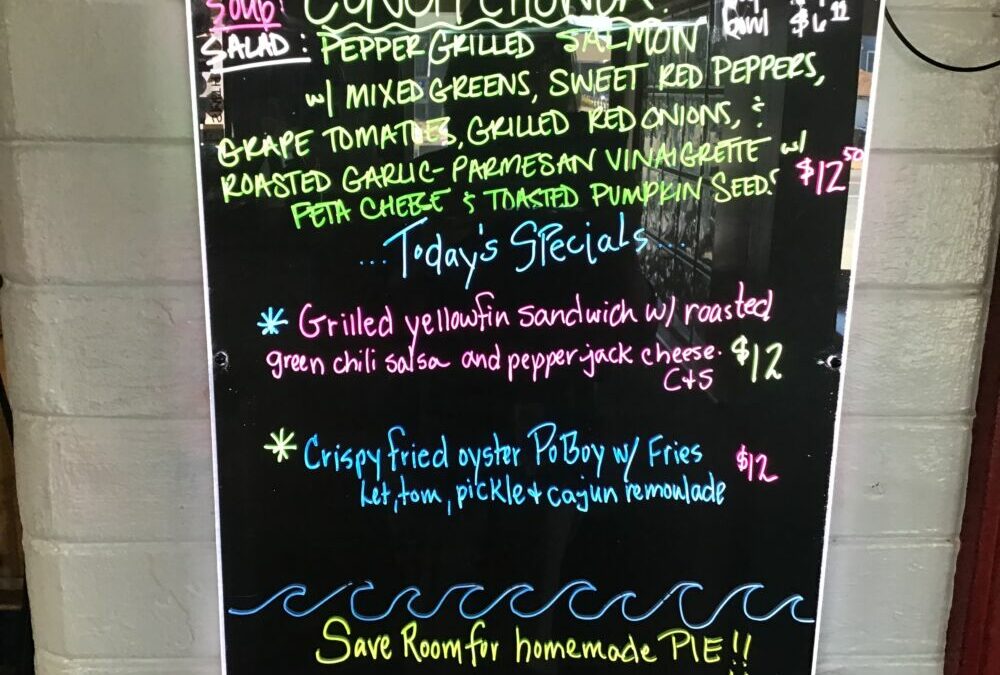 Soup:
SALAD: PEPPER GRILLED SALMON
bowl $6
w/ MIXED GREENS, SWEET RED PEPPERS,
GRAPE TOMATOES, GRILLED RED ONIONS, &
ROASTED GARLIC-PARMESAN VINAIGRETTE w/
FETA CHEESE & TOASTED PUMPKIN SEEDS $12 50
...Today's Specials...
* Grilled yellowfin sandwich w/ roasted
green chili salsa and pepper jack cheese. $12
C+S
* Crispy fried oyster Po Boy w/ Fries $12
Let, tom, pickle + cajun remoulade
Save Room for homemade PIE!!